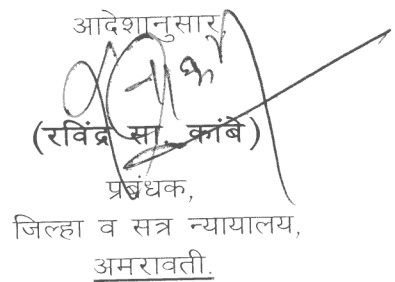 आदेशानुसार,
(रविंद्र सा. कांबे)
प्रबंधक,
जिल्हा व सत्र न्यायालय,
अमरावती.